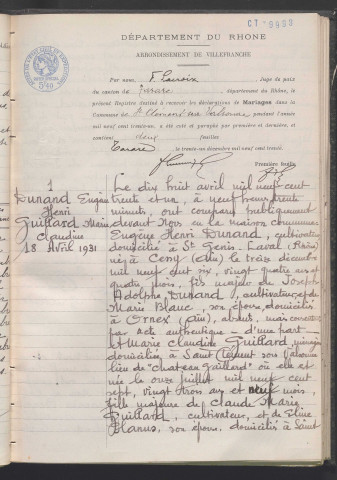 CT 9603
DÉPARTEMENT DU RHONE
ARRONDISSEMENT DE VILLEFRANCHE
Par nous, Juge de paix
du canton de Tarare, département du Rhône, le
présent Registre destiné à recevoir les déclarations de Mariages dans la
Commune de St Clément sur Valsonne pendant l'année
mil neuf cent trentième, a été coté et paraphé par première et dernière, et
contient cinq feuilles
Tarare, le trente-un décembre mil neuf cent trente
Première feuille,
1
Dunand Eugène
Henri
Guillard Marie
Claudine
18 Avril 1931
Le dix huit avril mil neuf cent
trente et un, à neuf heures trente
minutes, ont comparu publiquement
devant Nous en la maison commune
Eugène Henri Dunand, cultivateur
domicilié à St Genis-Laval (Rhône)
né à Cessy (Ain) le treize décembre
mil neuf cent six, vingt quatre ans et
quatre mois, fils majeur de Joseph
Adolphe Dunand, cultivateur, et de
Marie Blanc, son épouse, domiciliés à
Ornex (Ain), absents, mais consentants
par acte authentique – d'une part
Et Marie Claudine Guillard, ménagère
domiciliée à Saint Clément sur Valsonne
lieu de "Chateau Guillard" où elle est
née le onze juillet mil neuf cent
sept, vingt trois ans et neuf mois,
fille majeure de Claude Marie
Guillard, cultivateur, et de
son épouse, domiciliés à Saint